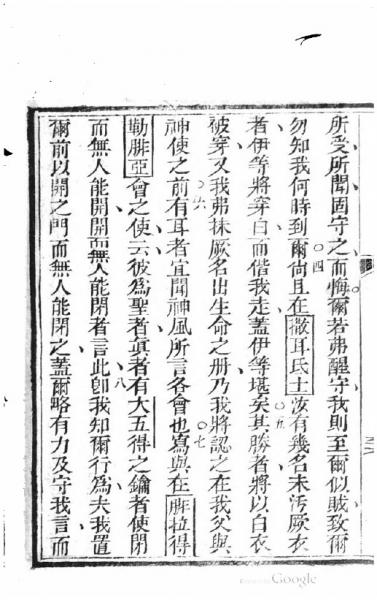 所受所聞固守之而悔爾若弗醒守我則至爾似賊致爾
勿知我何時到爾尚且在撒耳氐士汝有幾名未汚厥衣
者伊等將穿白而偕我走蓋伊等堪矣其勝者將以白衣
被穿又我弗抹厥名出生命之册乃我將認之在我父與
神使之前有耳者宜聞神風所言各會也寫與在腓拉得
勒腓亞會之使云彼為聖者真者有大五得之鑰者使閉
而無人能開開而無人能閉者言此卽我知爾行為夫我置
爾前以開之門而無人能閉之蓋爾略有力及守我言而
四
五
六
七
八
Google